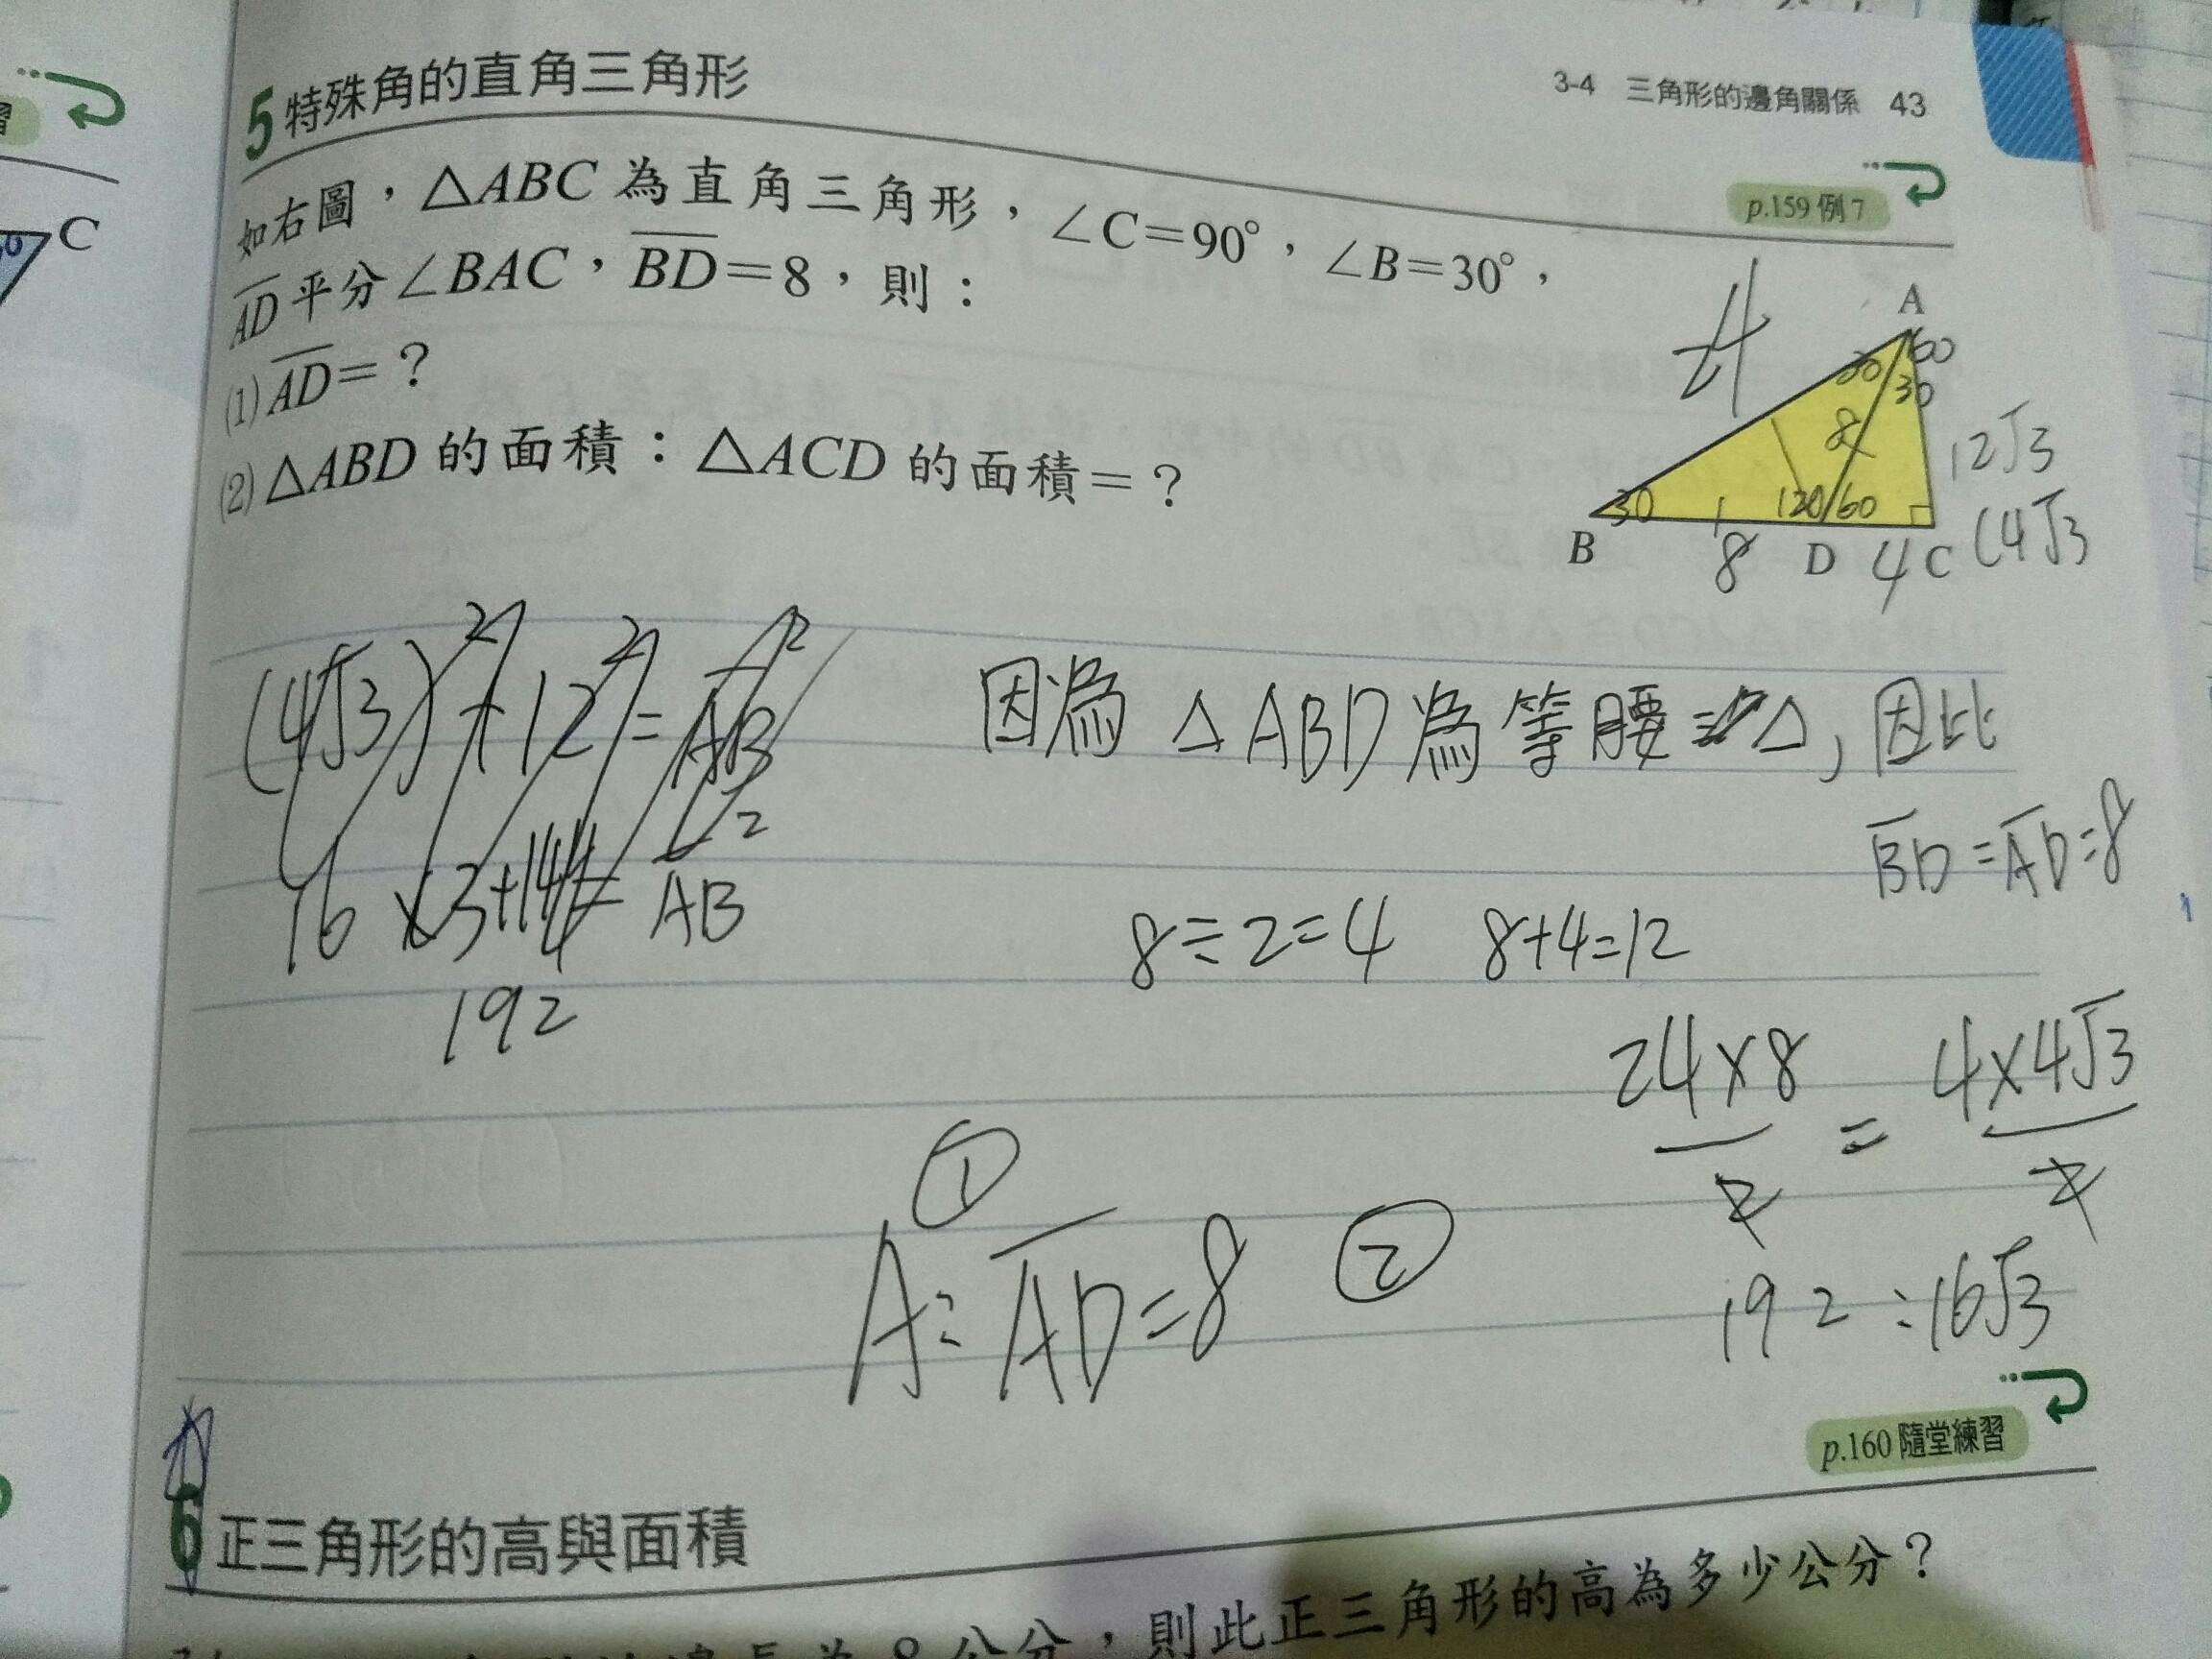 5 特殊角的直角三角形
3-4 三角形的邊角關係 43
p.159 例 7
如右圖，△ABC 為直角三角形，∠C=90°，∠B=30°，
AD 平分∠BAC，BD=8，則：
(1) AD=？
(2) △ABD 的面積：△ACD 的面積=？
C
A
60
30
30
8
12√3
30
120
60
B
8
D
4
C
(4√3
(4√3)²+12²=AB²
16×3+144=AB²
192
因為 △ABD 為等腰△, 因此
BD=AD=8
8÷2=4 8+4=12
24×8/2 = 4×4√3/2
192:16√3
①
A:AD=8
②
p.160 隨堂練習
6 正三角形的高與面積
8 公分，則此正三角形的高為多少公分？